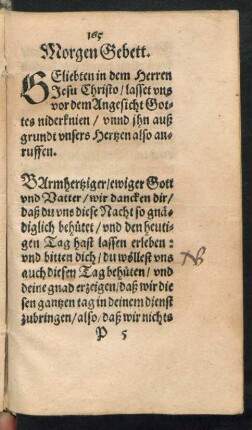 165
Morgen Gebett.
GEliebten in dem Herren
Jesu Christo / lasset vns
vor dem Angesicht Got-
tes niderknien / vnnd jhn auß
grundt vnsers Hertzen also an-
ruffen.
BArmhertziger / ewiger Gott
vnd Vatter / wir dancken dir /
daß du vns diese Nacht so gnä-
diglich behütet / vnd den heuti-
gen Tag hast lassen erleben:
vnd bitten dich / du wöllest vns
auch diesen Tag behüten / vnd
deine gnad erzeigen / daß wir die
sen gantzen tag in deinem dienst
zubringen / also / daß wir nichts
P 5
NB